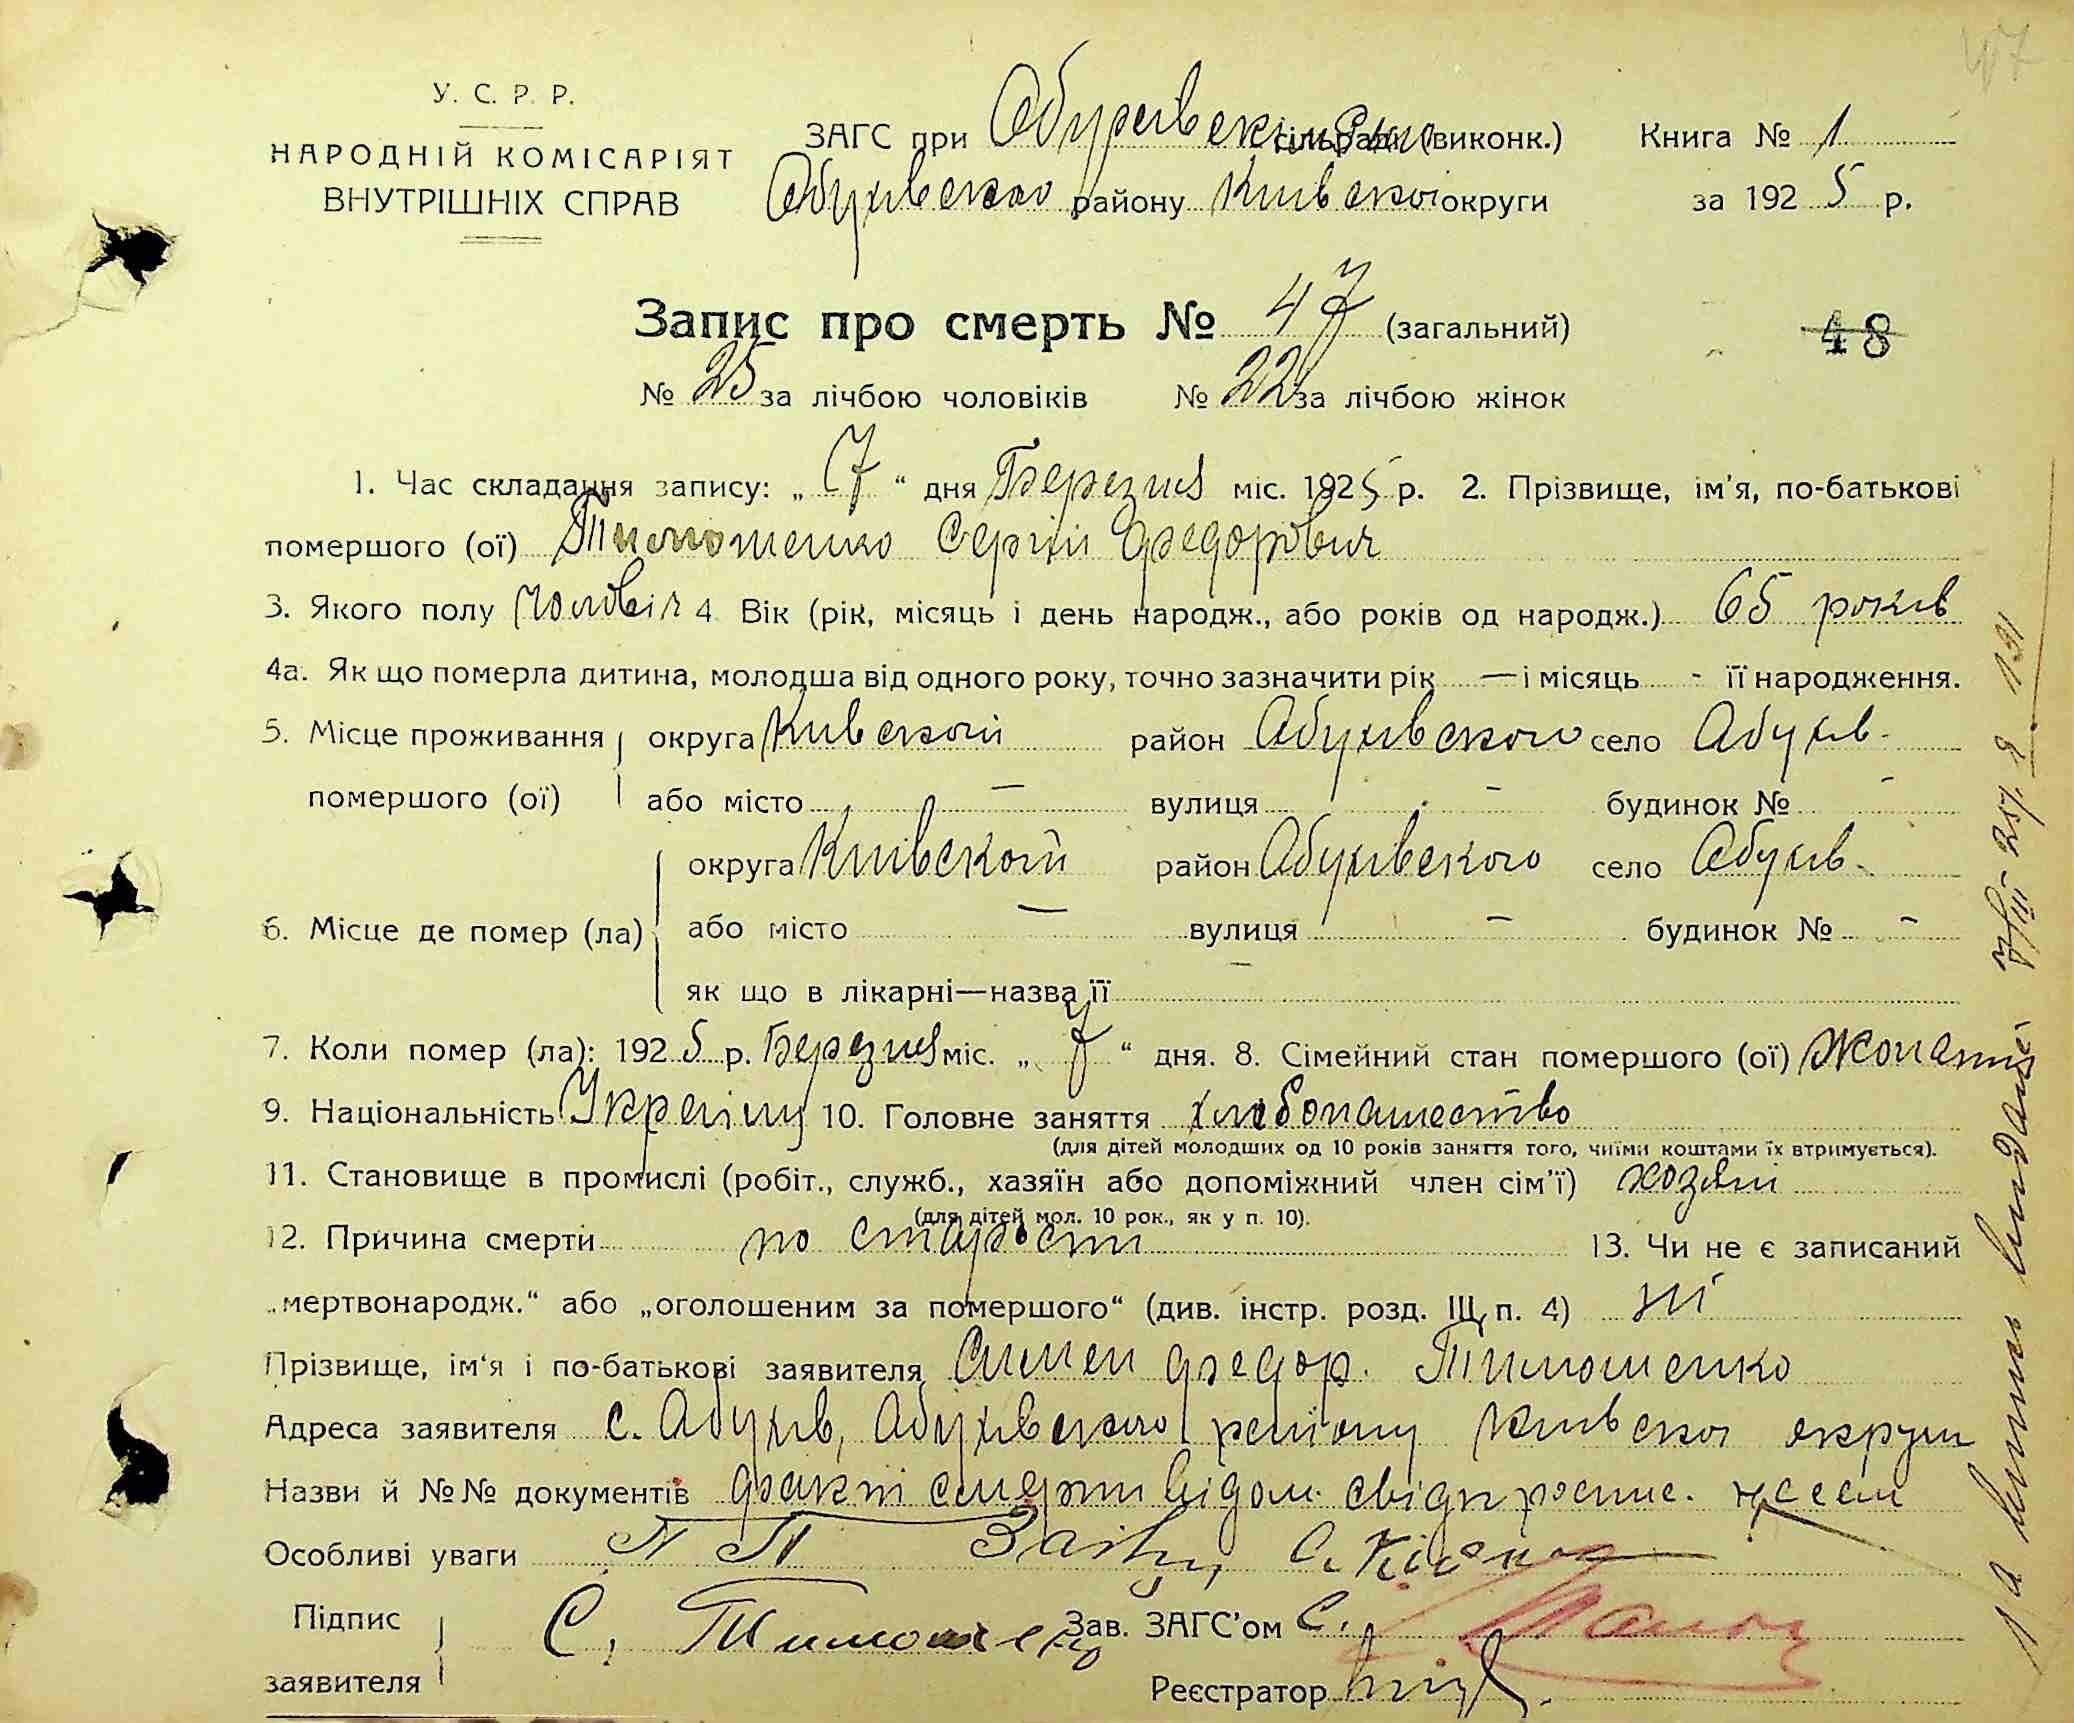 47
У. С. Р. Р.
НАРОДНІЙ КОМІСАРІЯТ
ВНУТРІШНІХ СПРАВ
ЗАГС при Обухівському сільраді (виконк.) Книга № 1
Обухівсково району Київскоі округи за 1925 р.
Запис про смерть № 47 (загальний)
48
№ 25 за лічбою чоловіків № 22 за лічбою жінок
1. Час складання запису: „ 7 “ дня Березня міс. 1925 р. 2. Прізвище, ім'я, по-батькові
помершого (ої) Тимошенко Сергій Федорович
3. Якого полу Чоловік 4. Вік (рік, місяць і день народж., або років од народж.) 65 років
4а. Як що померла дитина, молодша від одного року, точно зазначити рік — і місяць - її народження.
5. Місце проживання округа Київскоій район Обухівского село Обухів -
помершого (ої) або місто — вулиця - будинок № -
округа Київскоій район Обухівского село Обухів -
6. Місце де помер (ла) або місто — вулиця - будинок № -
як що в лікарні—назва її —
7. Коли помер (ла): 1925 р. Березня міс. „ 7 “ дня. 8. Сімейний стан помершого (ої) Жонатий
9. Національність Українц 10. Головне заняття хлібопашество
(для дітей молодших од 10 років заняття того, чиїми коштами їх втримується).
11. Становище в промислі (робіт., служб., хазяїн або допоміжний член сім'ї) хозяїн
(для дітей мол. 10 рок., як у п. 10).
12. Причина смерти по старости 13. Чи не є записаний
„мертвонародж.“ або „оголошеним за помершого“ (див. інстр. розд. ІЩ п. 4) ні
Прізвище, ім'я і по-батькові заявителя Симен Федор. Тимошенко
Адреса заявителя с. Обухів, Обухівского району Київскоі округи
Назви й №№ документів факт смерти відом. свідк
Особливі уваги
Підпис С. Тимошенко Зав. ЗАГС'ом С.
заявителя Реєстратор